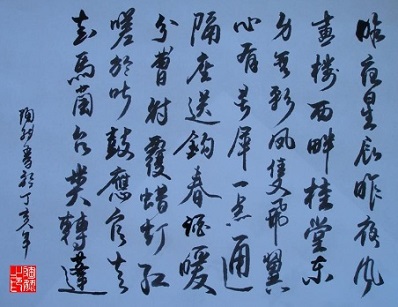 昨夜星辰昨夜风
畫樓西畔桂堂東
身无彩鳳雙飛翼
心有灵犀一点通
隔座送鈎春酒暖
分曹射覆蜡灯红
嗟余听鼓應官去
走馬蘭台類轉蓬
書於丁亥年